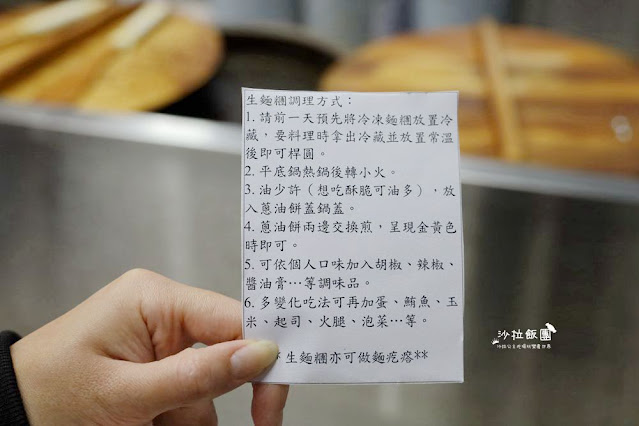 生麵糰調理方式：
1. 請前一天預先將冷凍麵糰放置冷
藏，要料理時拿出冷藏並放置常溫
後即可桿圓。
2. 平底鍋熱鍋後轉小火。
3. 油少許（想吃酥脆可油多），放
入蔥油餅蓋鍋蓋。
4. 蔥油餅兩邊交換煎，呈現金黃色
時即可。
5. 可依個人口味加入胡椒、辣椒、
醬油膏…等調味品。
6. 多變化吃法可再加蛋、鮪魚、玉
米、起司、火腿、泡菜…等。
生麵糰亦可做麵疙瘩**
沙拉飯團